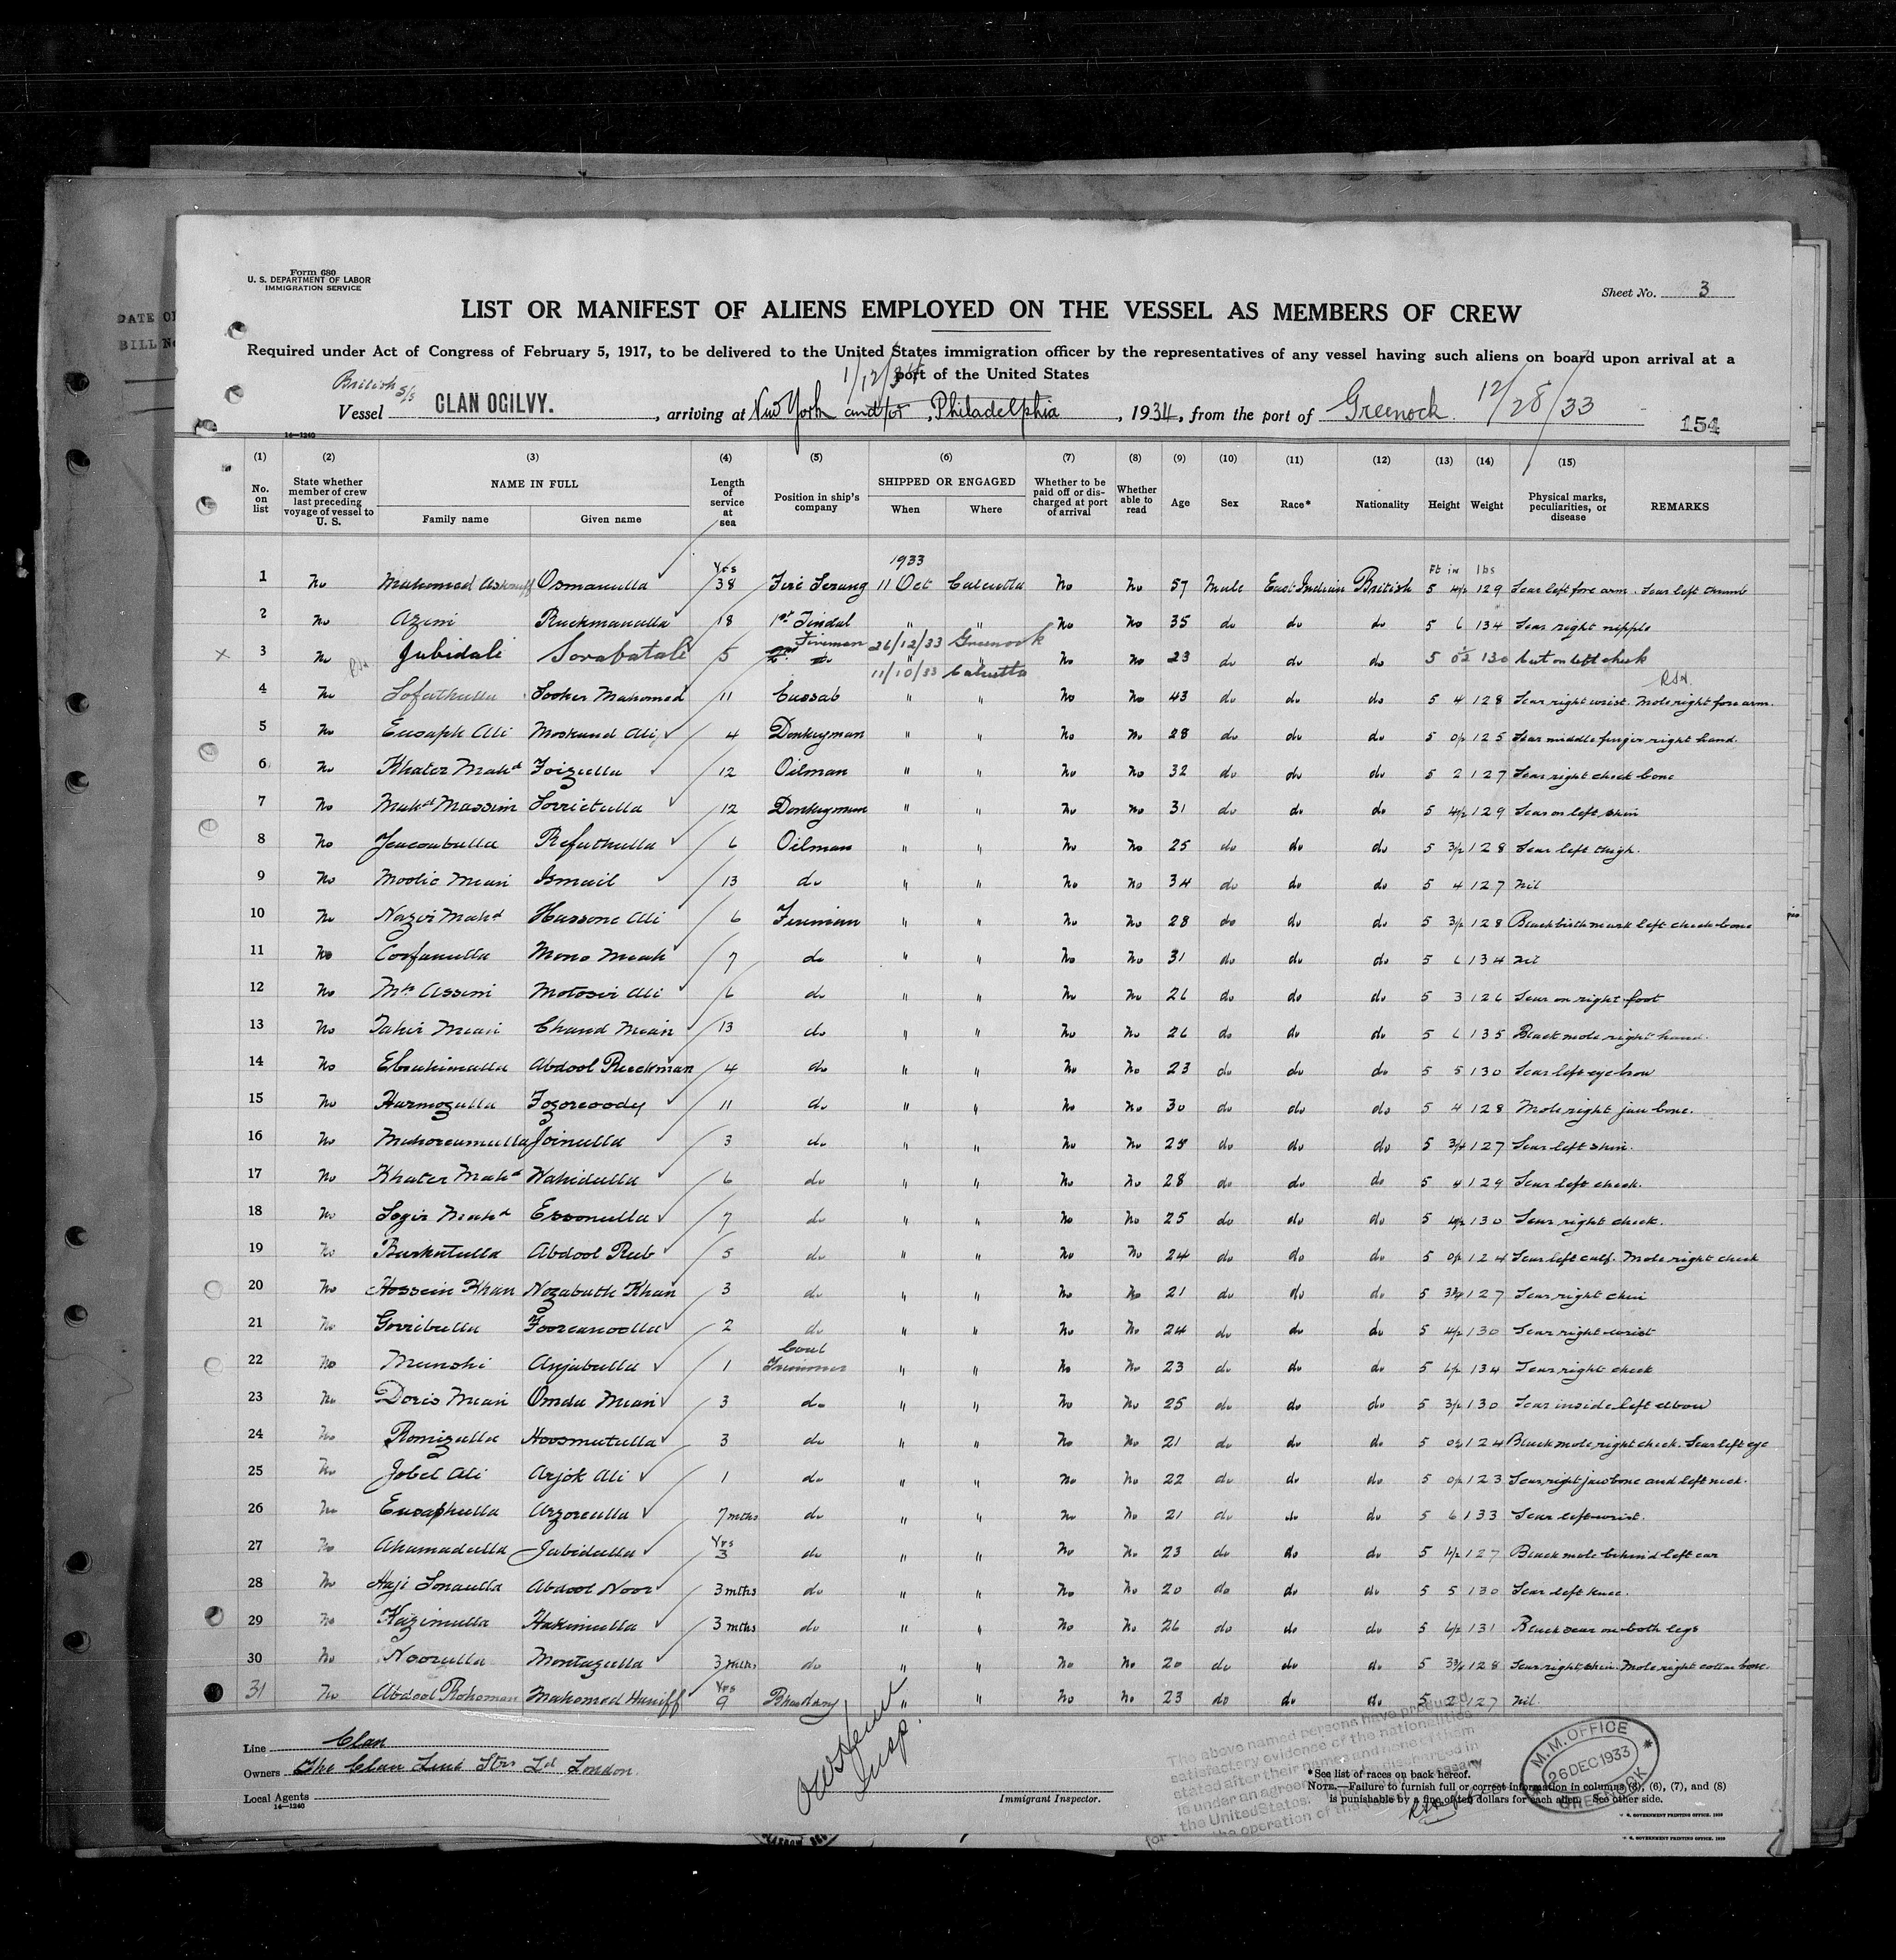 Form 680
U. S. DEPARTMENT OF LABOR
IMMIGRATION SERVICE
Sheet No. 3
LIST OR MANIFEST OF ALIENS EMPLOYED ON THE VESSEL AS MEMBERS OF CREW
Required under Act of Congress of February 5, 1917, to be delivered to the United States immigration officer by the representatives of any vessel having such aliens on board upon arrival at a
port of the United States
1/12/34
British S/S
Vessel CLAN OGILVY. , arriving at New York and/or Philadelphia , 1934, from the port of Greenock 12/28/33
154
14—1240
(1) (2) (3) (4) (5) (6) (7) (8) (9) (10) (11) (12) (13) (14) (15)
No. on list
State whether member of crew last preceding voyage of vessel to U. S.
NAME IN FULL
Family name Given name
Length of service at sea
Position in ship's company
SHIPPED OR ENGAGED
When Where
Whether to be paid off or discharged at port of arrival
Whether able to read
Age Sex Race* Nationality Height Weight
Physical marks, peculiarities, or disease
REMARKS
Yrs 1933 Ft in lbs
1 No Mahomed Osmanulla 38 Fire Serang 11 Oct Calcutta No No 57 Male East Indian British 5 4½ 129 Scar left fore arm. Scar left thumb
2 No Azim Ruckmanulla 18 1st Tindal " " No No 35 do do do 5 6 134 Scar right nipple
3 No Jubidali Sorabatali 5 Fireman 26/12/33 Greenock No No 23 do do do 5 0½ 130 Cut on left cheek
11/10/33 Calcutta
4 No Sofathulla Sooker Mahomed 11 Cassab " " No No 43 do do do 5 4 128 Scar right wrist. Mole right fore arm.
5 No Eusaph Ali Moskund Ali 4 Donkeyman " " No No 28 do do do 5 0½ 125 Scar middle finger right hand.
6 No Khater Mahd Foizulla 12 Oilman " " No No 32 do do do 5 2 127 Scar right cheek bone
7 No Mahd Massim Sorrietulla 12 Donkeyman " " No No 31 do do do 5 4½ 129 Scar on left shin
8 No Yeacoubulla Refathulla 6 Oilman " " No No 25 do do do 5 3½ 128 Scar left thigh.
9 No Moolic Mean Ismail 13 do " " No No 34 do do do 5 4 127 Nil
10 No Nazir Mahd Hassone Ali 6 Fireman " " No No 28 do do do 5 3½ 128 Black birth mark left cheek bone
11 No Corfanulla Mono Meah 7 do " " No No 31 do do do 5 6 134 Nil
12 No Assim Motosir Ali 6 do " " No No 26 do do do 5 3 126 Scar on right foot
13 No Tahir Mean Chand Mean 13 do " " No No 26 do do do 5 6 135 Black mole right hand.
14 No Ebrahimulla Abdool Ruckman 4 do " " No No 23 do do do 5 5 130 Scar left eye brow
15 No Harmozulla Fozoroody 11 do " " No No 30 do do do 5 4 128 Mole right jaw bone.
16 No Joinulla 3 do " " No No do do do 5 127 Scar left shin.
17 No Khater Mahd Wahidulla 6 do " " No No 28 do do do 5 4 129 Scar left cheek.
18 No Sogir Mahd Essonulla 7 do " " No No 25 do do do 5 4½ 130 Scar right cheek.
19 No Burkutulla Abdool Rub 5 do " " No No 24 do do do 5 0½ 124 Scar left calf. Mole right cheek
20 No Hossein Khan Nozabuth Khan 3 do " " No No 21 do do do 5 3¾ 127 Scar right chin
21 No Gorribulla Foorcanoolla 2 do " " No No 24 do do do 5 4½ 130 Scar right wrist
22 No Munshi Anjabulla 1 Coal Trimmer " " No No 23 do do do 5 6½ 134 Scar right cheek
23 No Doris Mean Omda Mean 3 do " " No No 25 do do do 5 3½ 130 Scar inside left elbow
24 No Romizulla Hoosmutulla 3 do " " No No 21 do do do 5 0½ 124 Black mole right cheek. Scar left eye
25 No Jobel Ali Arjok Ali 1 do " " No No 22 do do do 5 0½ 123 Scar right jaw bone and left neck.
26 No Eusaphulla Arzorculla 7 mths do " " No No 21 do do do 5 6 133 Scar left wrist.
27 No Ahamadulla Jubidulla Yrs 3 do " " No No 23 do do do 5 4½ 127 Black mole behind left ear
28 No Haji Sonaulla Abdool Noor 3 mths do " " No No 20 do do do 5 5 130 Scar left knee.
29 No Kazimulla Hakimulla 3 mths do " " No No 26 do do do 5 6½ 131 Black scar on both legs
30 No Noorulla Montazulla 3 mths do " " No No 20 do do do 5 3¾ 128 Scar right shin. Mole right collar bone.
31 No Abdool Rohoman Mahomed Haniff Yrs 9 Bhandary " " No No 23 do do do 5 2 127 Nil.
Line Clan
Owners The Clan Line Strs Ld London
Local Agents
14—1240
Insp.
Immigrant Inspector.
The above named persons have produced
satisfactory evidence of the nationalities
stated after their names and none of them
is under an agreement to be discharged in
the United States.
the operation of the
*See list of races on back hereof.
NOTE.—Failure to furnish full or correct information in columns (3), (6), (7), and (8)
is punishable by a fine of ten dollars for each alien. See other side.
M. M. OFFICE
26 DEC 1933
GREENOCK
U. S. GOVERNMENT PRINTING OFFICE: 1929
DATE OF
BILL No